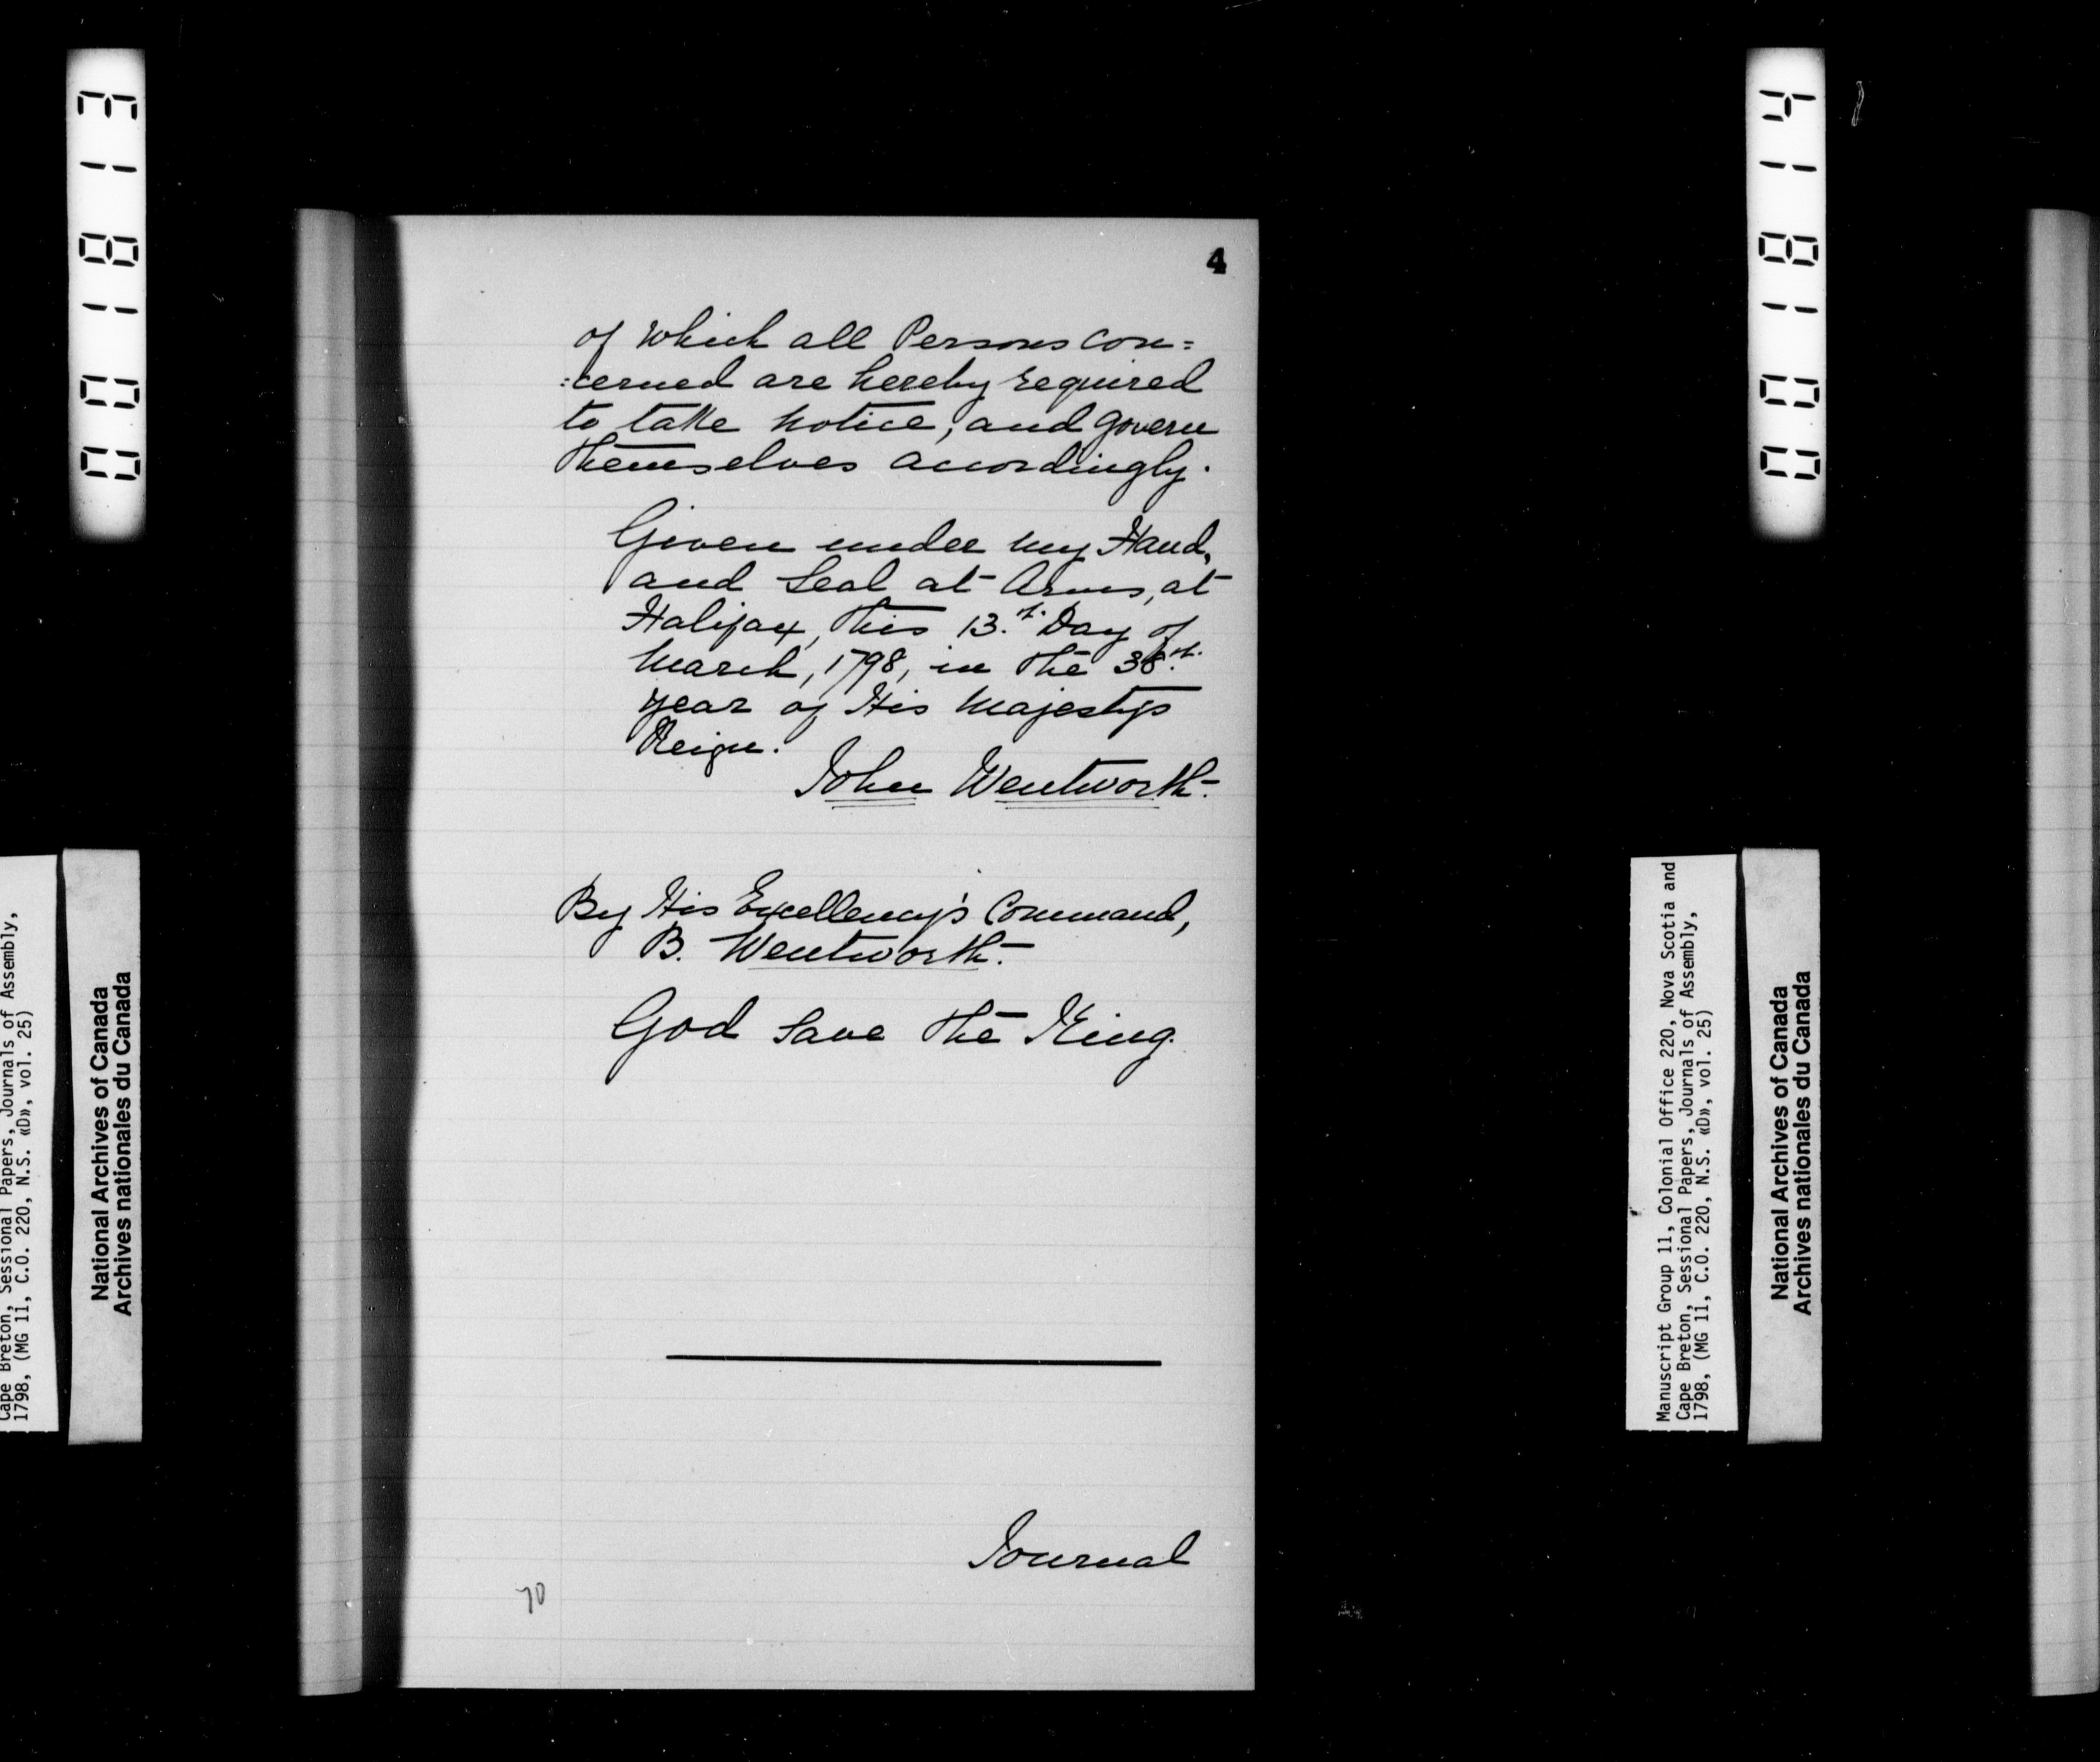 4
of which all Persons con=
=cerned are hereby required
to take notice, and govern
themselves accordingly.
Given under my Hand,
and Seal at Arms, at
Halifax, this 13.th Day of
March, 1798, in the 38.th
year of His Majesty's
Reign.
John Wentworth.
By His Excellency's Command,
B. Wentworth.
God save the King.
Journal
70
001813
Cape Breton, Sessional Papers, Journals of Assembly,
1798, (MG 11, C.O. 220, N.S. «D», vol. 25)
National Archives of Canada
Archives nationales du Canada
001814
Manuscript Group 11, Colonial Office 220, Nova Scotia and
Cape Breton, Sessional Papers, Journals of Assembly,
1798, (MG 11, C.O. 220, N.S. «D», vol. 25)
National Archives of Canada
Archives nationales du Canada